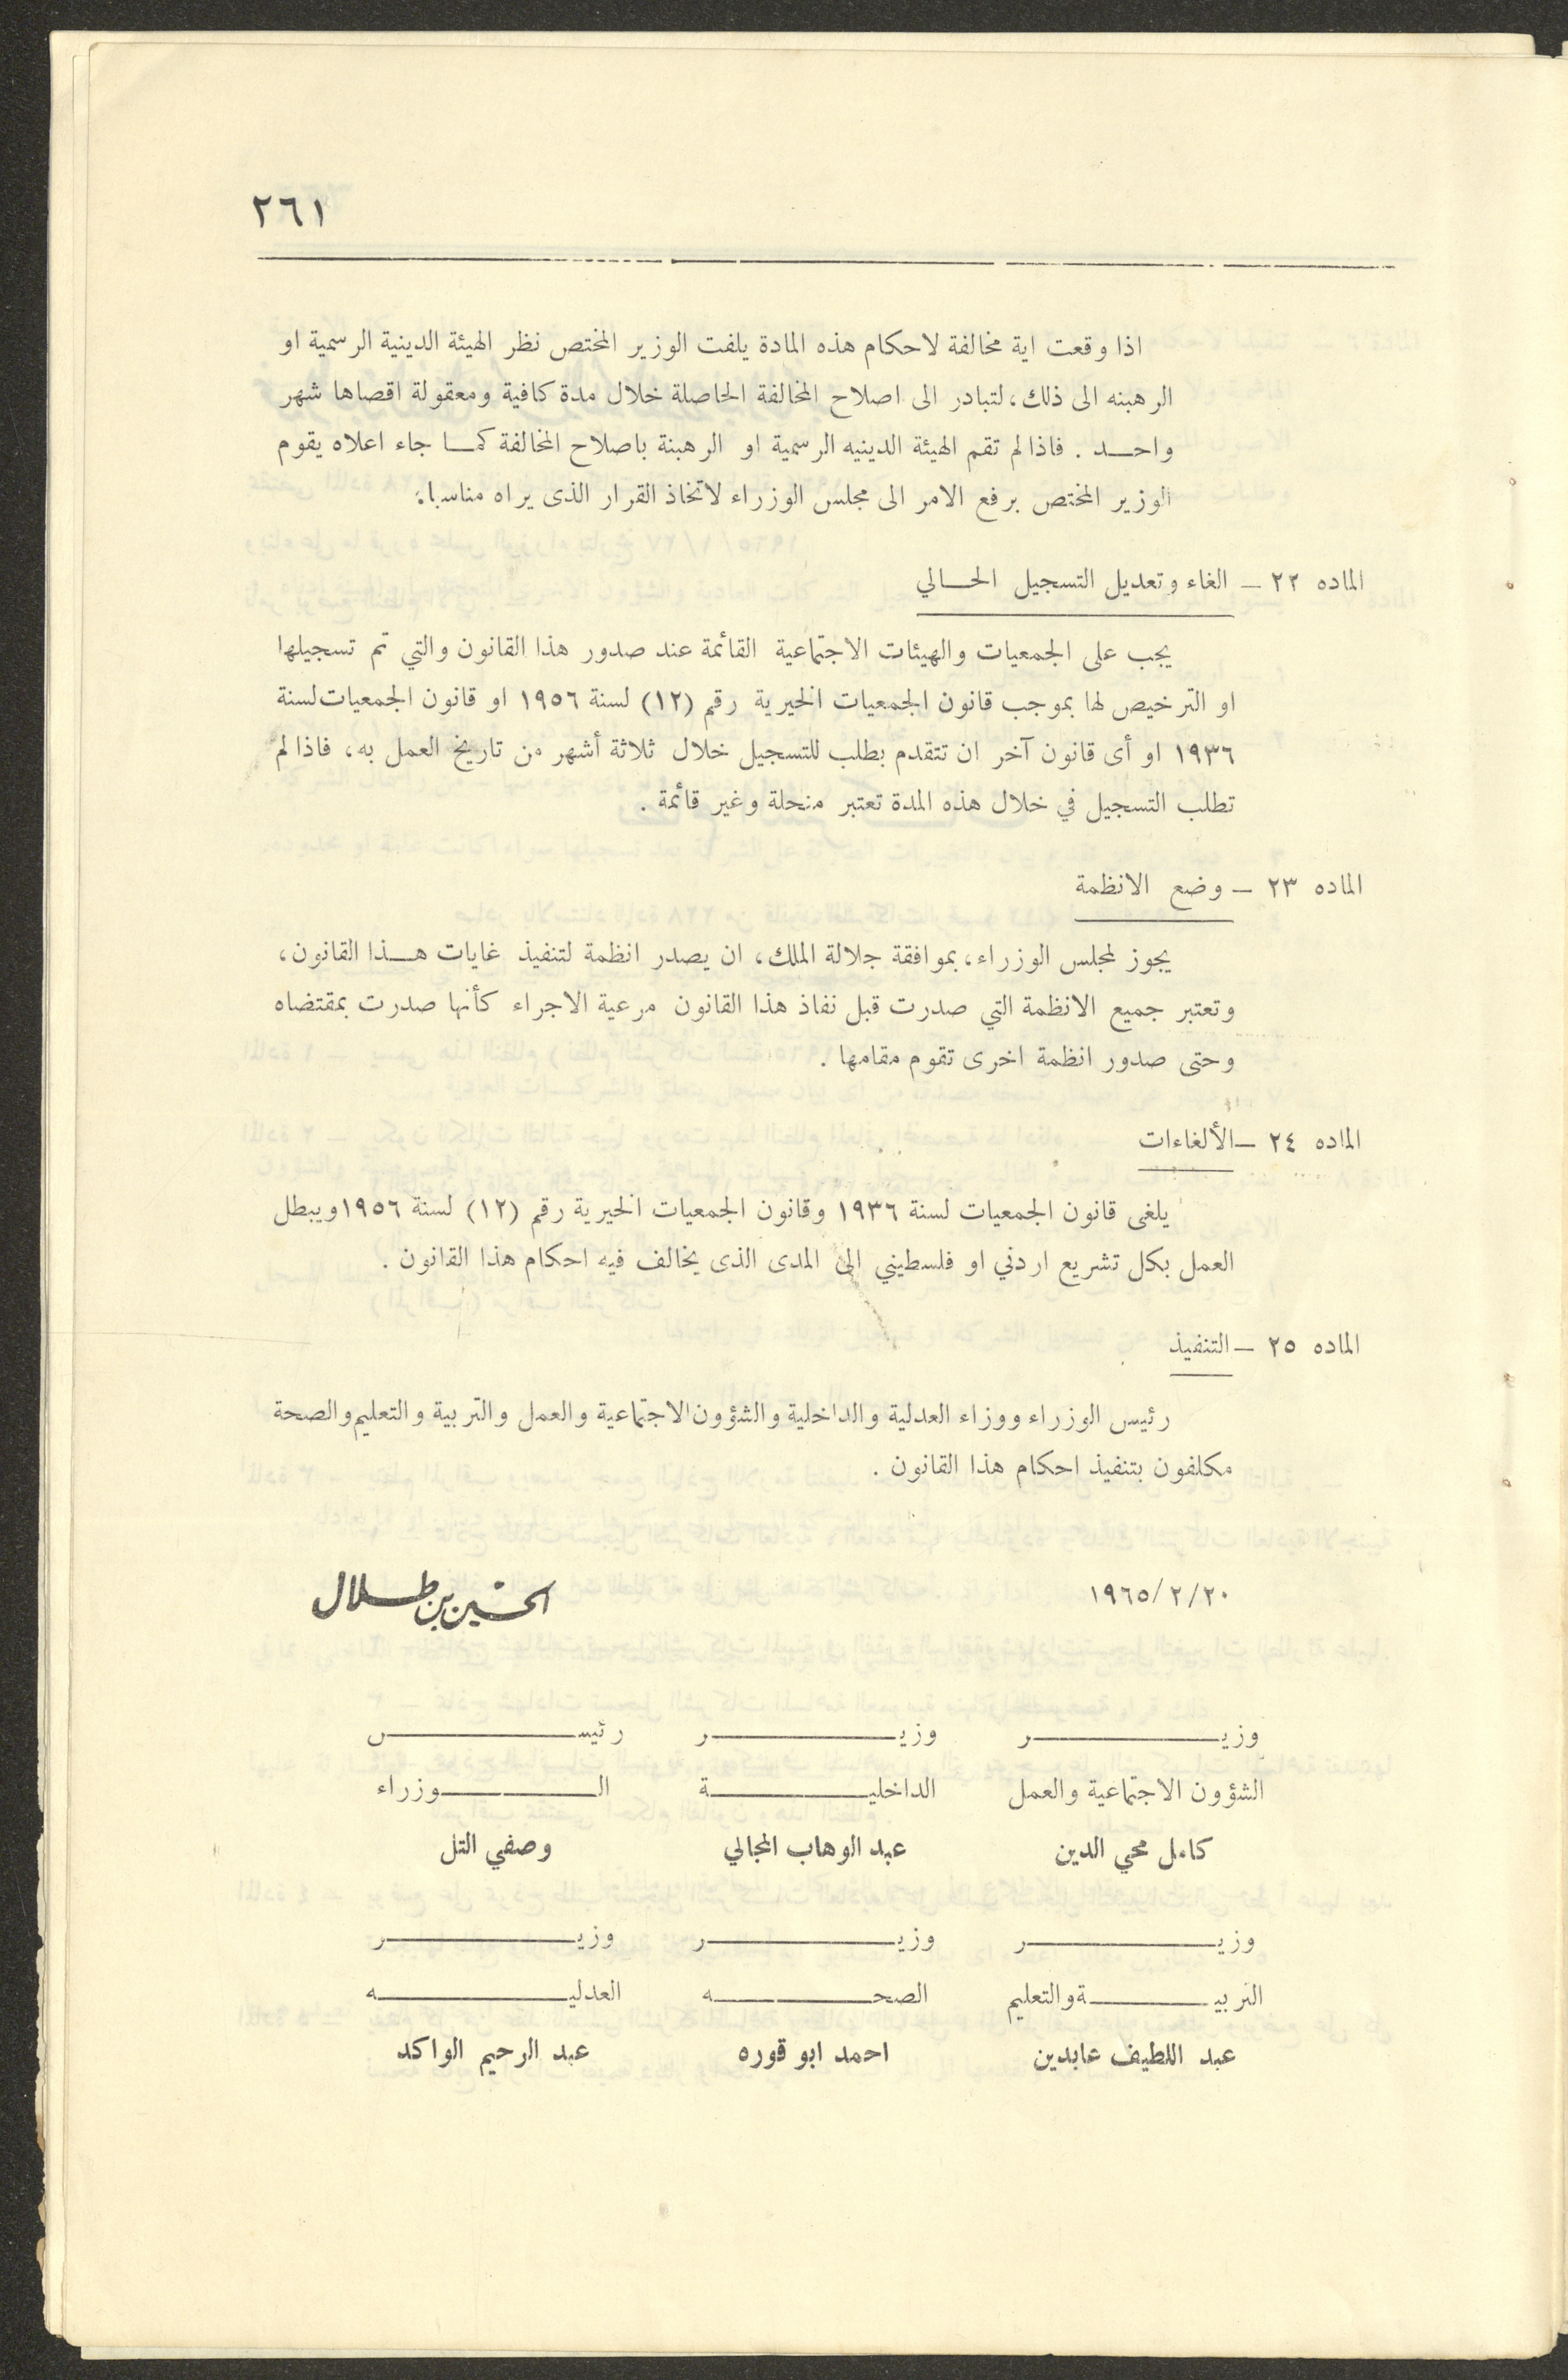 ٢٦١
اذا وقعت اية مخالفة لاحكام هذه المادة يلفت الوزير المختص نظر الهيئة الدينية الرسمية او
الرهبنه الى ذلك، لتبادر الى اصلاح المخالفة الحاصلة خلال مدة كافية ومعقولة اقصاها شهر
واحـــد . فاذا لم تقم الهيئة الدينيه الرسمية او الرهبنة باصلاح المخالفة كمـا جاء اعلاه يقوم
الوزير المختص برفع الامر الى مجلس الوزراء لاتخاذ القرار الذى يراه مناسبا.
الماده ٢٢ – الغاء وتعديل التسجيل الحـالي
يجب على الجمعيات والهيئات الاجتماعية القائمة عند صدور هذا القانون والتي تم تسجيلها
او الترخيص لها بموجب قانون الجمعيات الخيرية رقم (١٢) لسنة ١٩٥٦ او قانون الجمعيات لسنة
١٩٣٦ او أى قانون آخر ان تتقدم بطلب للتسجيل خلال ثلاثة أشهر من تاريخ العمل به، فاذا لم
تطلب التسجيل في خلال هذه المدة تعتبر منحلة وغير قائمة .
الماده ٢٣ – وضع الانظمة
يجوز لمجلس الوزراء، بموافقة جلالة الملك، ان يصدر انظمة لتنفيذ غايات هـــذا القانون،
وتعتبر جميع الانظمة التي صدرت قبل نفاذ هذا القانون مرعية الاجراء كأنها صدرت بمقتضاه
وحتى صدور انظمة اخرى تقوم مقامها .
الماده ٢٤ – الألغاءات
يلغى قانون الجمعيات لسنة ١٩٣٦ وقانون الجمعيات الخيرية رقم (١٢) لسنة ١٩٥٦ ويبطل
العمل بكل تشريع اردني او فلسطيني الى المدى الذى يخالف فيه احكام هذا القانون .
الماده ٢٥ – التنفيذ
رئيس الوزراء ووزاء العدلية والداخلية والشؤون الاجتماعية والعمل والتربية والتعليم والصحة
مكلفون بتنفيذ احكام هذا القانون .
١٩٦٥/٢/٢٠ الحسين بن طلال
وزيـــــــر وزيـــــــر رئيـــــــس
الشؤون الاجتماعية والعمل الداخليـــــــة الـــــــوزراء
كامل محي الدين عبد الوهاب المجالي وصفي التل
وزيـــــــر وزيـــــــر وزيـــــــر
التربيـــــــة والتعليم الصحـــــــه العدليـــــــه
عبد اللطيف عابدين احمد ابو قوره عبد الرحيم الواكد